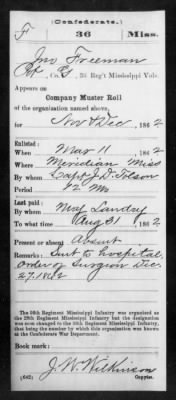 (Confederate.)
F 36 Miss.
Jno Freeman
Pvt, Co. G, 36 Reg't Mississippi Vols.
Appears on
Company Muster Roll
of the organization named above,
for Nov & Dec, 1862
Enlisted:
When Mar 11, 186 2
Where Meridian Miss
By whom Capt J. D. Tolson
Period 12 Mo
Last paid:
By whom Maj Landry
To what time Aug 31, 186 2
Present or absent Absent
Remarks: Sent to hospital
order of Surgeon Dec.
27. 1862
The 36th Regiment Mississippi Infantry was organized as
the Regiment Mississippi Infantry but the designation
was now changed to the 36th Regiment Mississippi Infantry,
that being the number by which this organization was known at
the Confederate War Department.
Book mark:
J. W. Wilkinson
(642) Copyist.